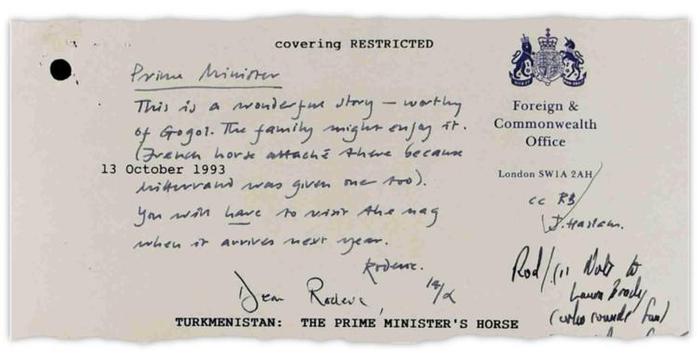 covering RESTRICTED
Prime Minister
This is a wonderful story – worthy
of Gogol. The family might enjoy it.
(French horse attaché there because
Mitterrand was given one too).
You will have to visit the nag
when it arrives next year.
Roderic.
13 October 1993
Foreign &
Commonwealth
Office
London SW1A 2AH
cc RB
J. Haslam.
Dear Roderic,
TURKMENISTAN: THE PRIME MINISTER'S HORSE
Rod/ Note to
Laura Brady
(who sounds